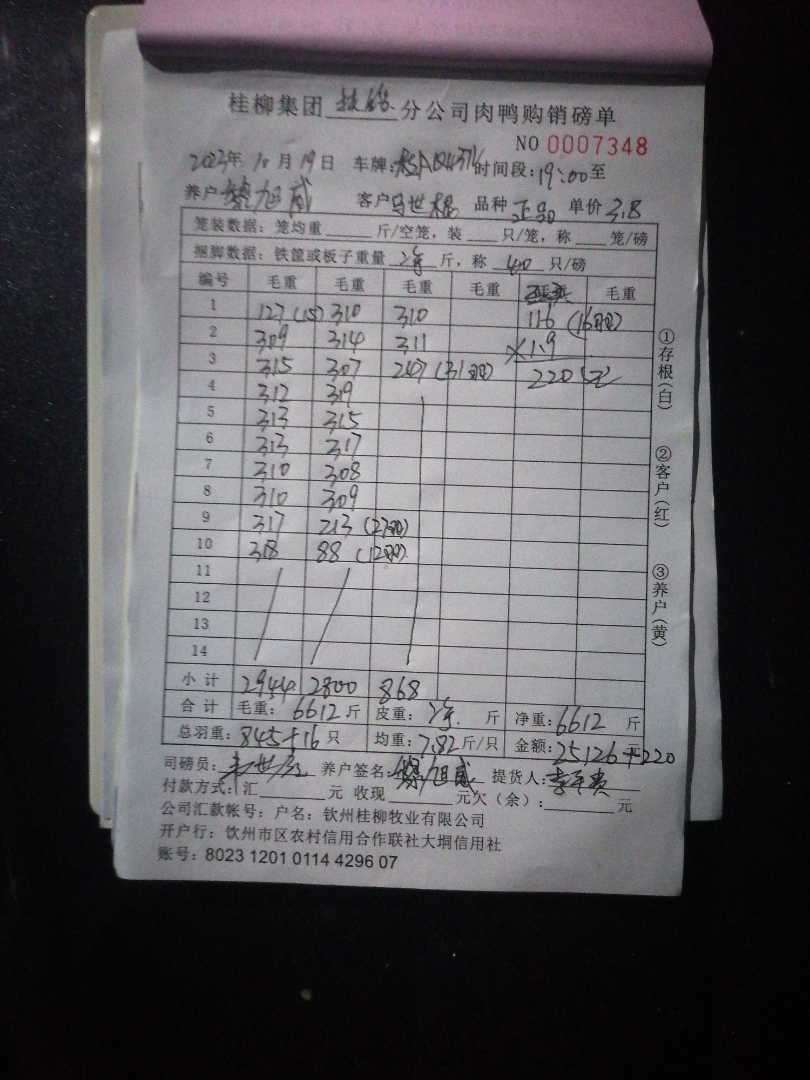 桂柳集团 分公司肉鸭购销磅单
NO 0007348
2023年10月19日 车牌: 时间段:19:00至
养户 旭威 客户马世 品种 正品 单价 3.8
笼装数据:笼均重 斤/空笼,装 只/笼,称 笼/磅
捆脚数据:铁筐或板子重量 净 斤,称 40 只/磅
编号 毛重 毛重 毛重 毛重 毛重
1 127(15) 310 310 116(16只)
2 309 314 311 ×1.9
3 315 307 247(31只) 220元
4 312 319
5 313 315
6 313 317
7 310 308
8 310 309
9 317 213(27只)
10 318 88(12只)
11
12
13
14
小计 2944 2800 868
合计 毛重:6612斤 皮重:净.斤 净重:6612斤
总羽重:845+16只 均重:7.82斤/只 金额:25126+220
司磅员: 养户签名: 旭威 提货人:
付款方式:汇 元 收现 元欠(余): 元
公司汇款帐号:户名:钦州桂柳牧业有限公司
开户行:钦州市区农村信用合作联社大垌信用社
账号:8023 1201 0114 4296 07
①存根(白)
②客户(红)
③养户(黄)